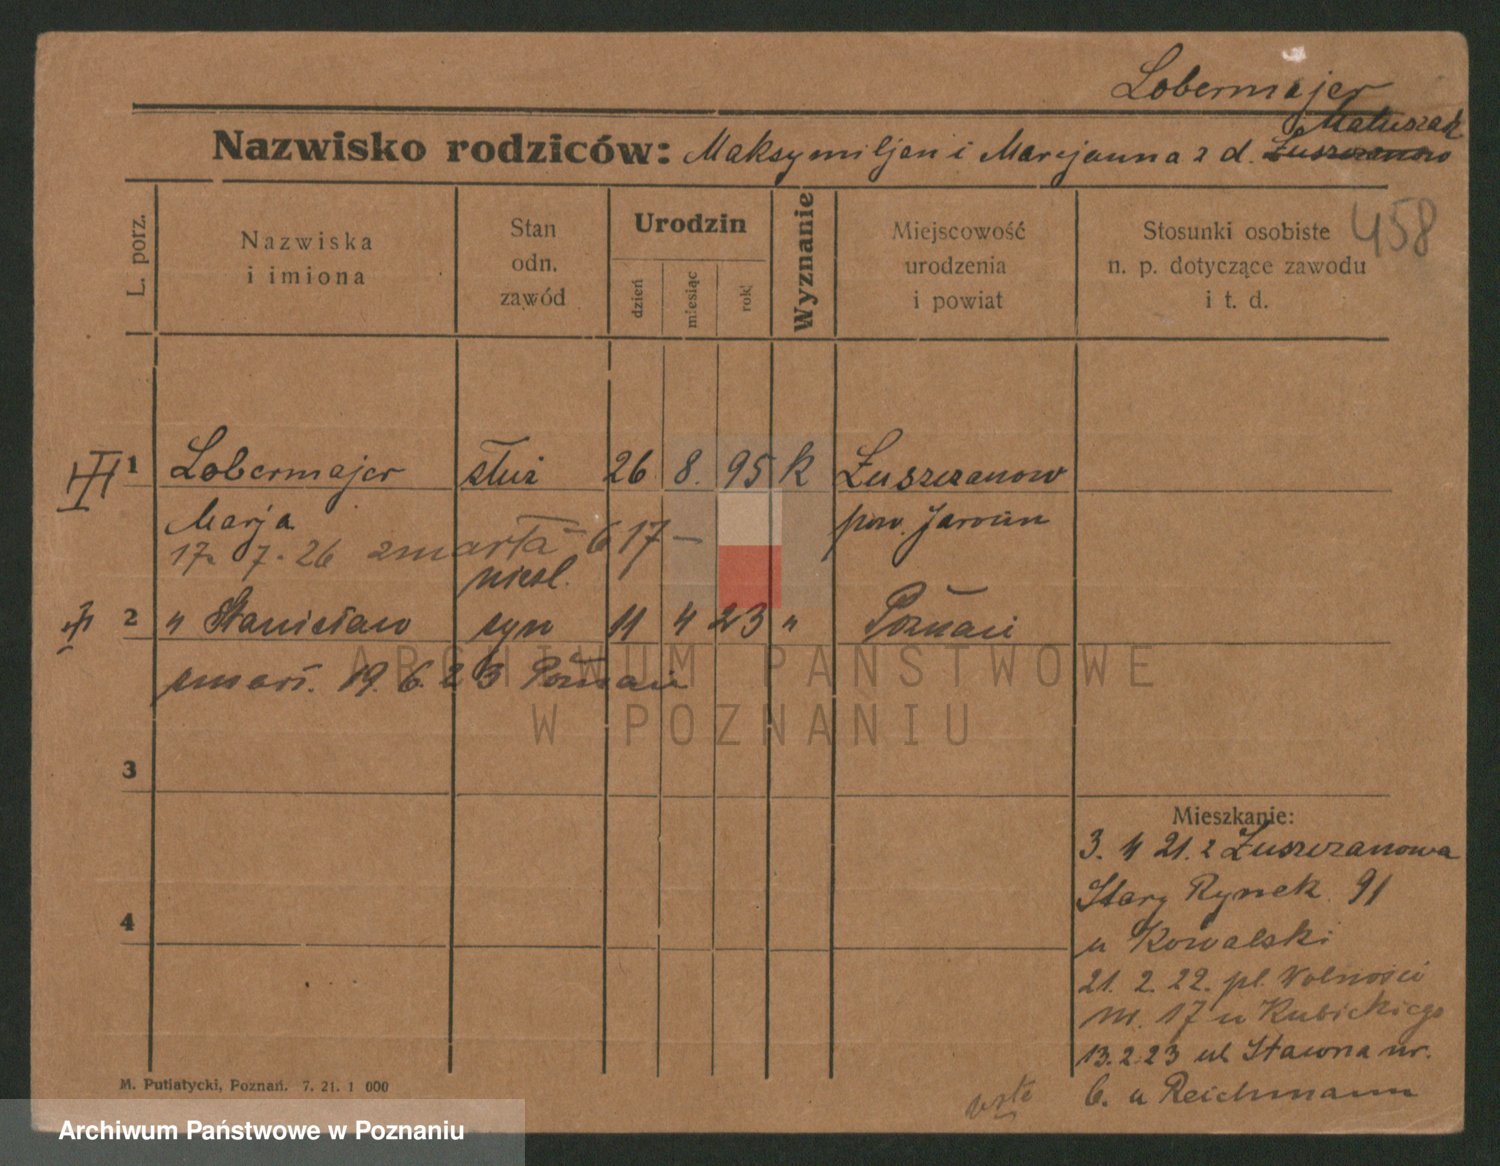 Lobermajer
Matuszak
Nazwisko rodziców: Maksymiljan i Marijanna z d. Łuszczanow
458
L. porz.
Nazwiska
i imiona
Stan
odn.
zawód
Urodzin
dzień
miesiąc
rok
Wyznanie
Miejscowość
urodzenia
i powiat
Stosunki osobiste
n. p. dotyczące zawodu
i t. d.
1 Lobermajer służ 26 8. 95 k Łuszczanow
Marja pow. Jarocin
17. 7. 26 zmarła 617 —
niesl.
2 " Stanisław syn 11 4 23 " Poznań
zmarł. 19. 6. 23 Poznań
3
4
Mieszkanie:
3. 4 21. z Łuszczanowa
Stary Rynek 91
u Kowalski
21. 2. 22. pl. Wolności
nr. 17 u Kubickiego
13. 2. 23 ul Stawna nr.
6. u Reichmann
M. Putiatycki, Poznań. 7. 21. 1 000
ARCHIWUM PAŃSTWOWE
W POZNANIU
Archiwum Państwowe w Poznaniu